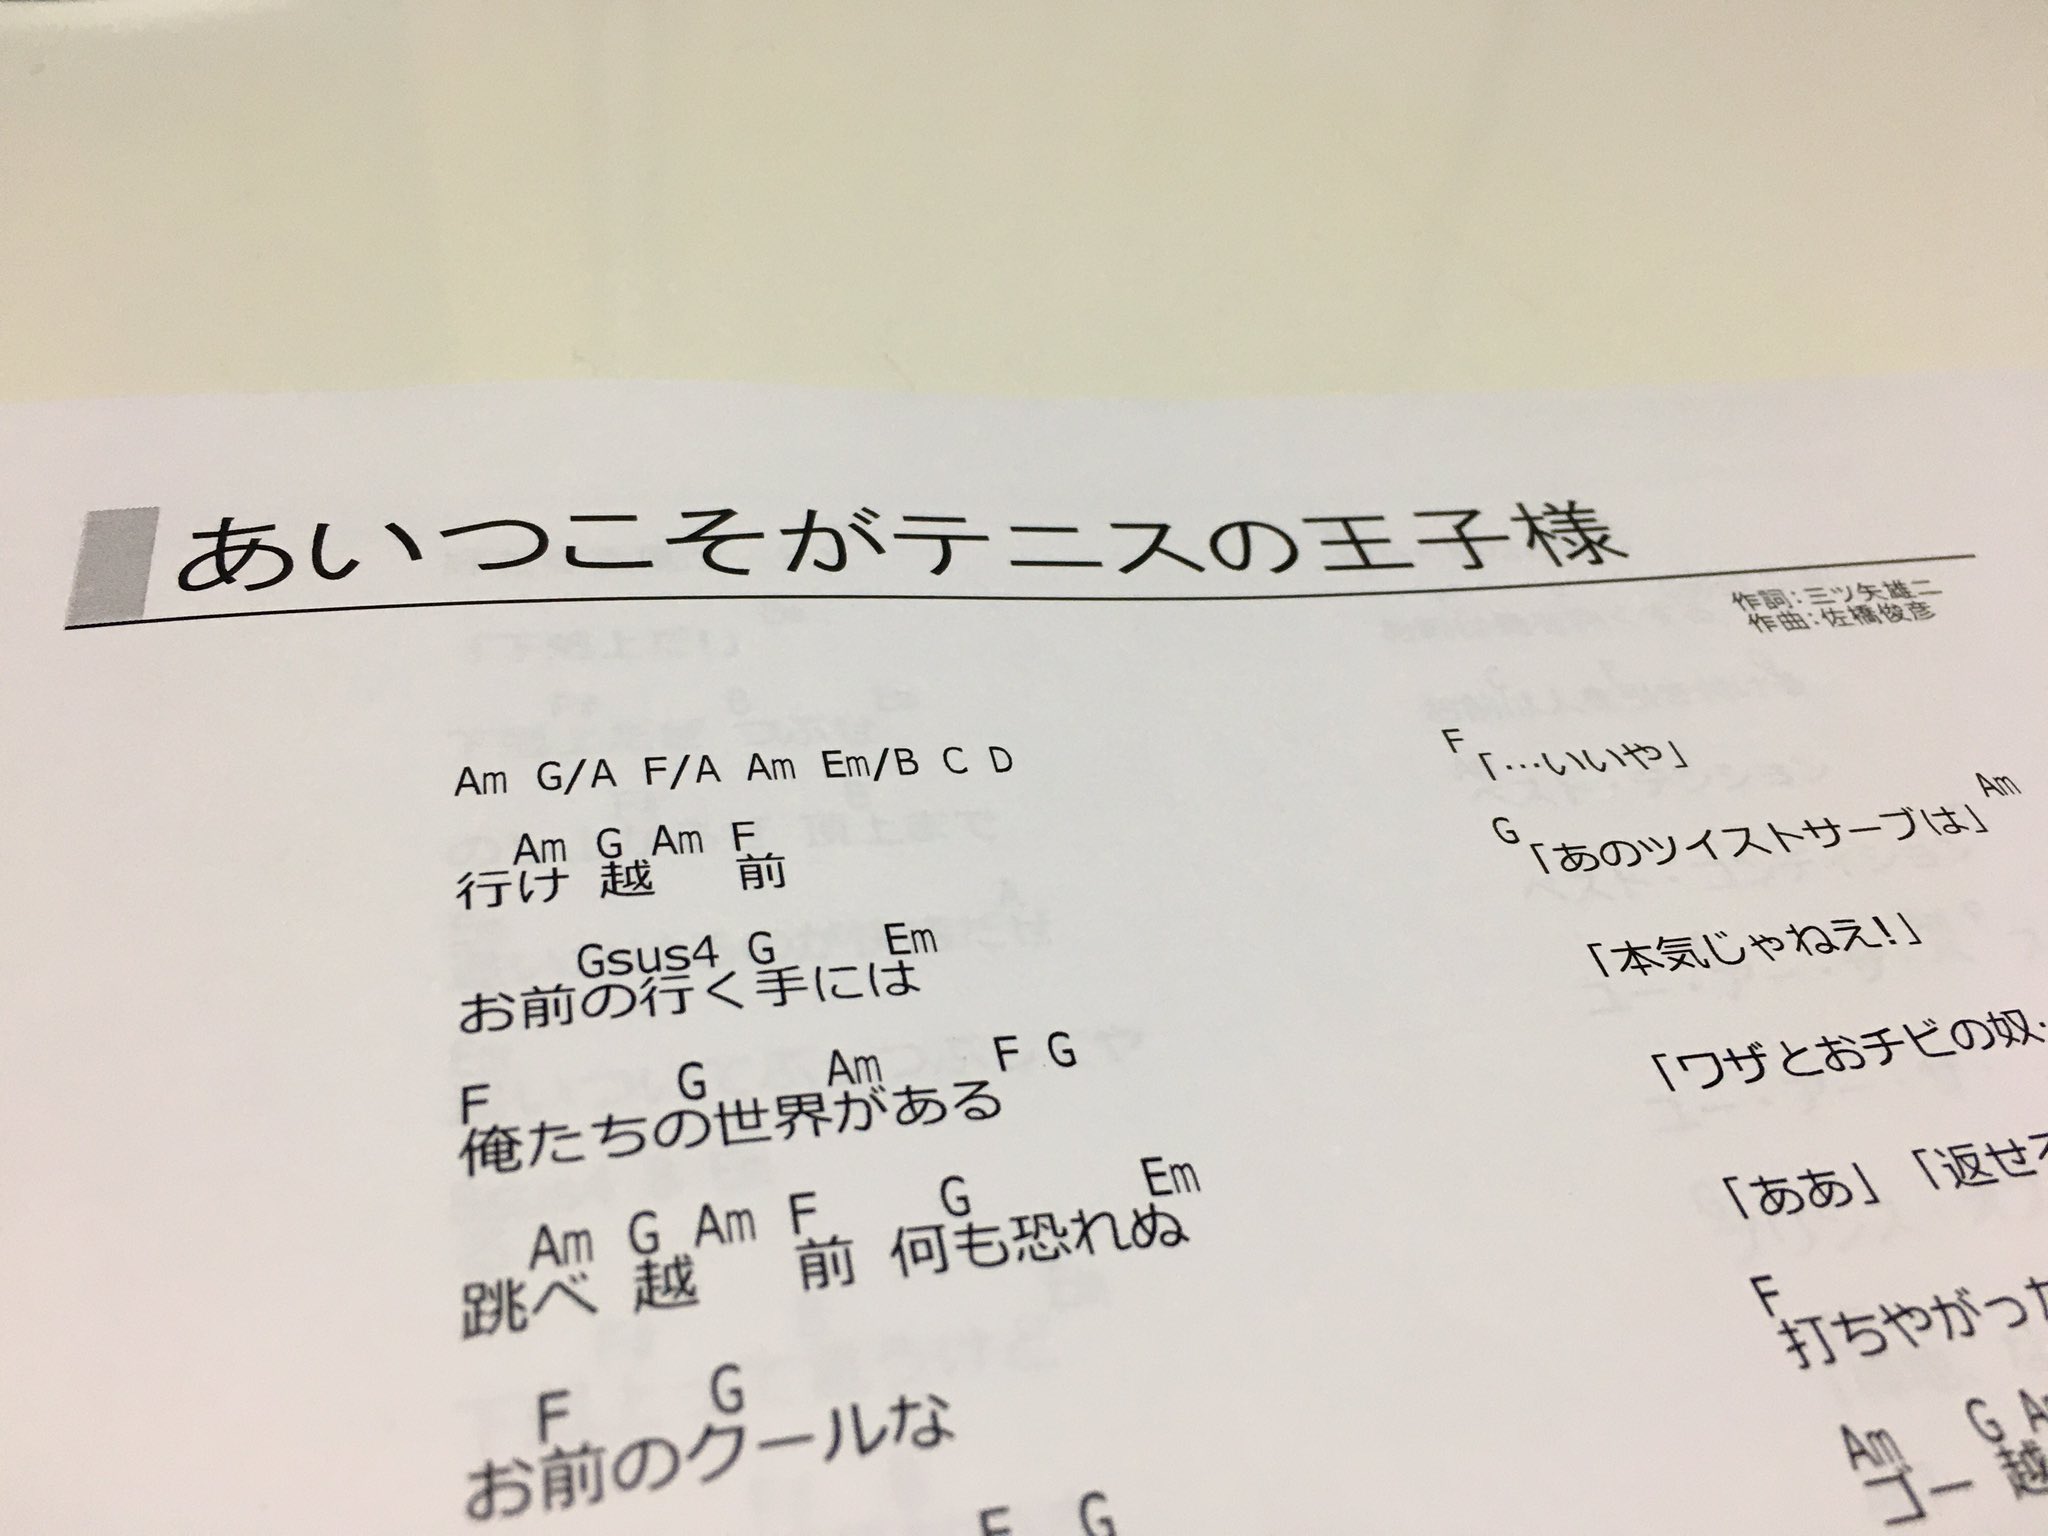 あいつこそがテニスの王子様
作詞：三ツ矢雄二
作曲：佐橋俊彦
Am G/A F/A Am Em/B C D
Am G Am F
行け 越 前
Gsus4 G Em
お前の行く手には
F G Am F G
俺たちの世界がある
Am G Am F G Em
跳べ 越 前 何も恐れぬ
F G
お前のクールな
F G
F
「…いいや」
G Am
「あのツイストサーブは」
「本気じゃねえ！」
「ワザとおチビの奴…
「ああ」「返せ
F
打ちやがった
Am G
ゴー 越